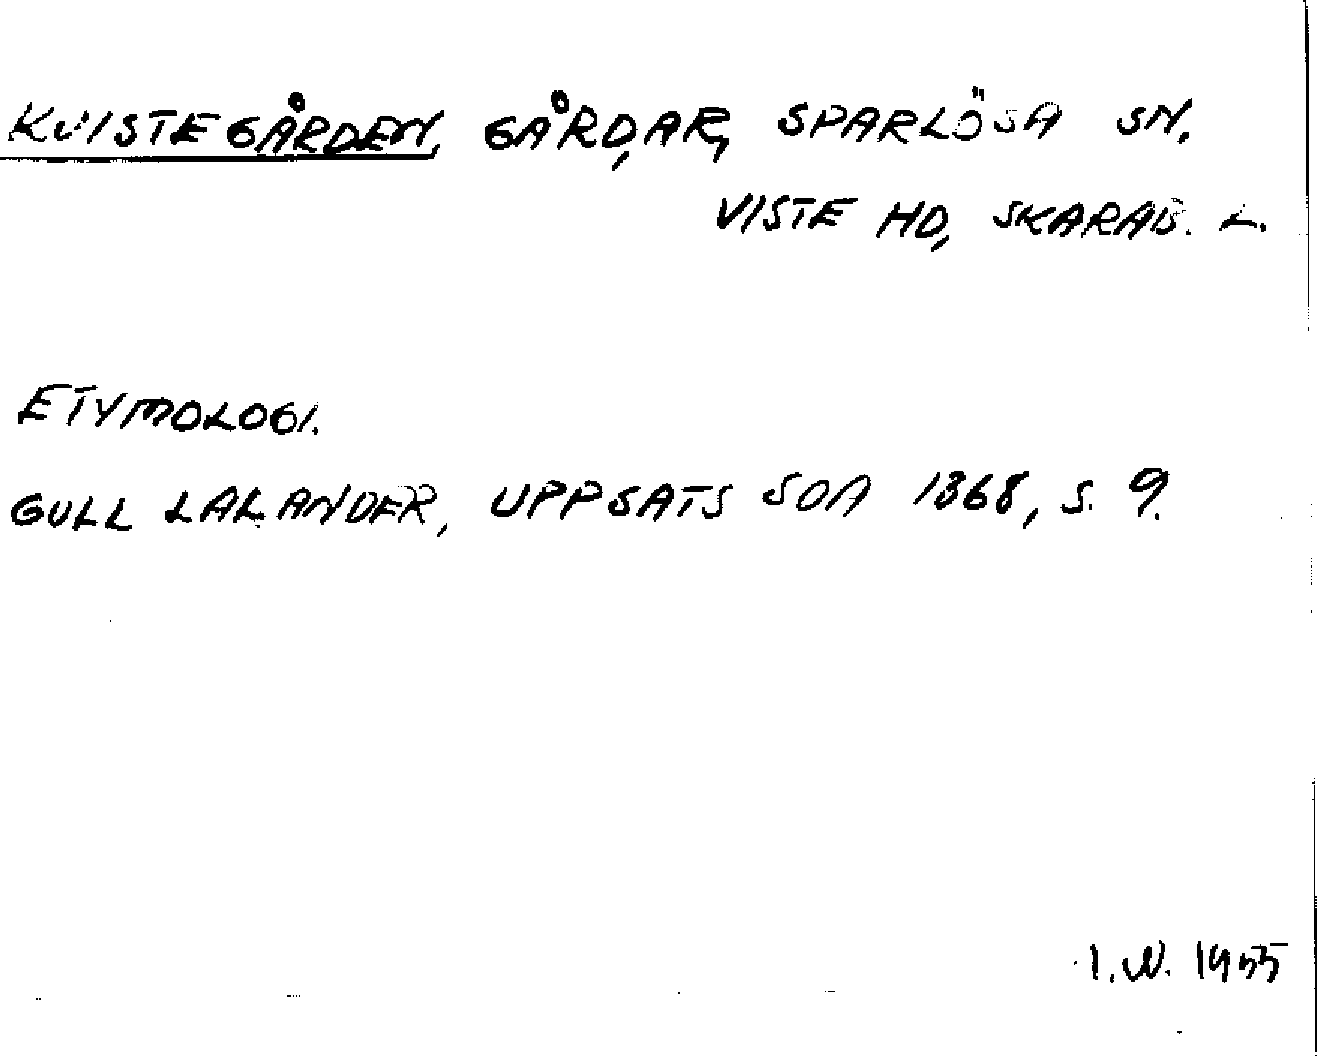 KVISTEGÅRDEN, GÅRDAR, SPARLÖSA SN,
VISTE HD, SKARAB. L.
ETYMOLOGI.
GULL LALANDER, UPPSATS SOA 1368, S. 9.
I.W. 1955